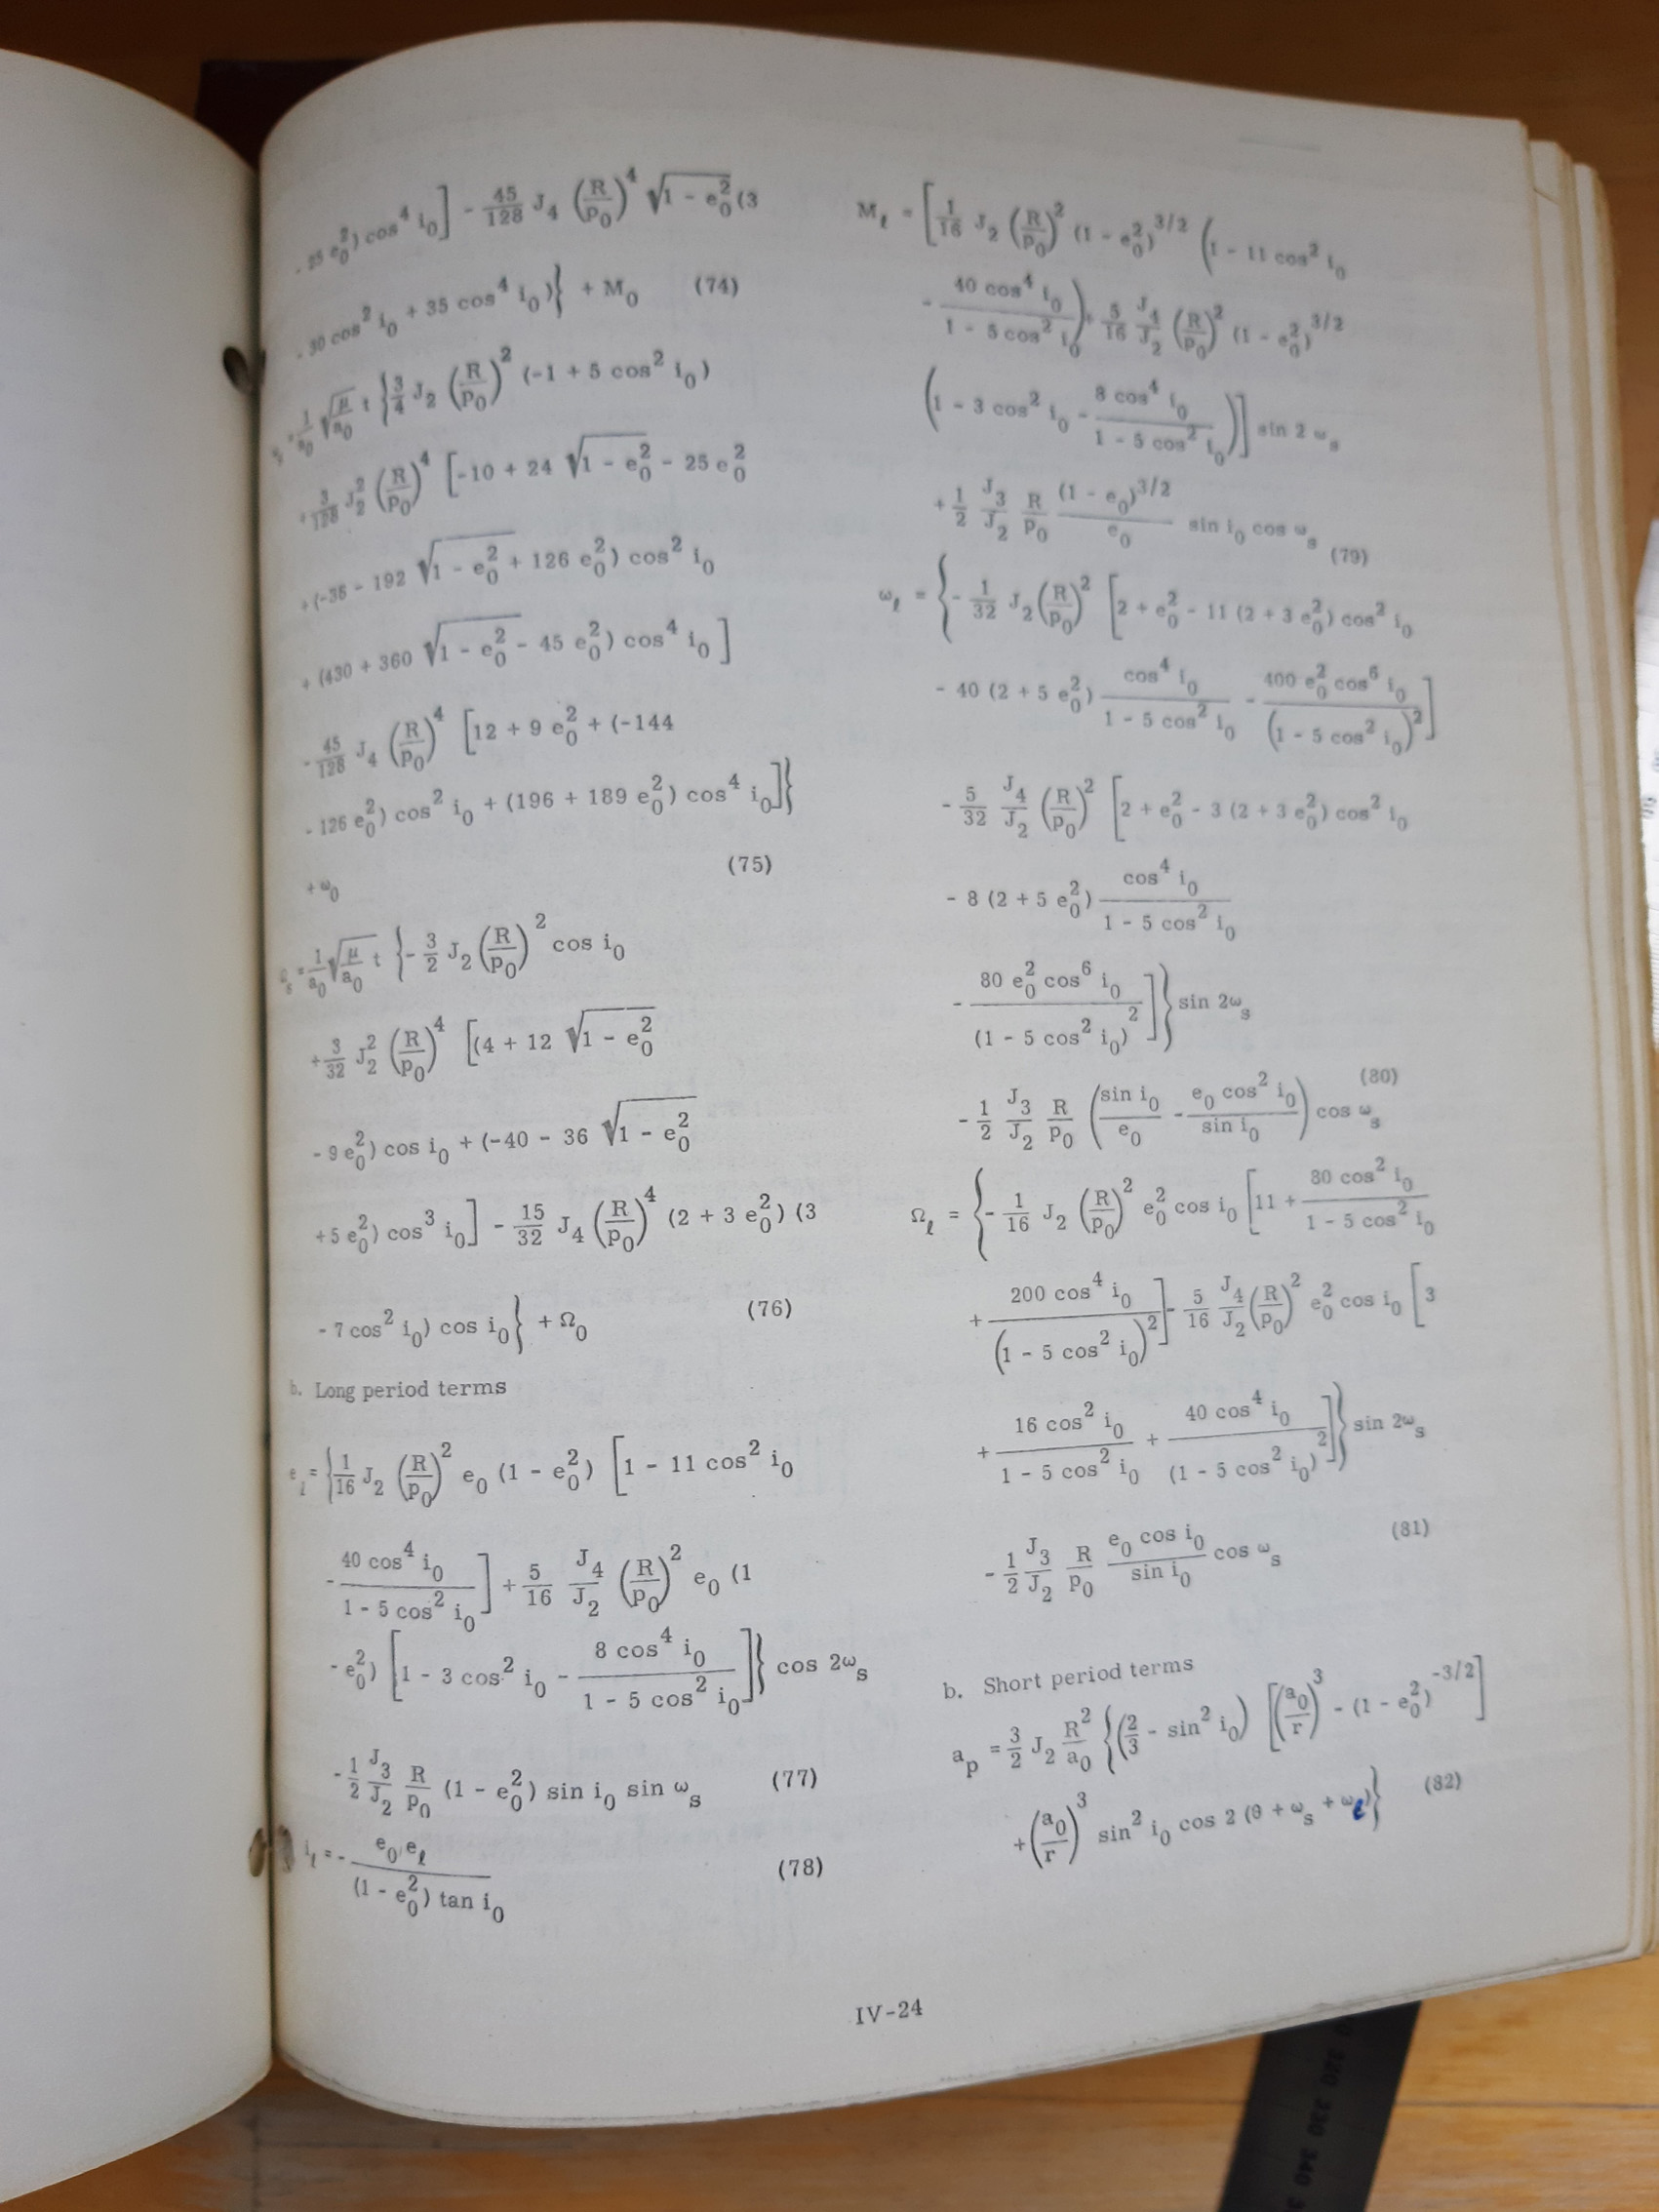 - 25 e₀²) cos⁴ i₀] - 45/128 J₄ (R/p₀)⁴ √(1 - e₀²) (3
- 30 cos² i₀ + 35 cos⁴ i₀)} + M₀ (74)
= 1/a₀ √(μ/a₀) t {3/4 J₂ (R/p₀)² (-1 + 5 cos² i₀)
+ 3/128 J₂² (R/p₀)⁴ [-10 + 24 √(1 - e₀²) - 25 e₀²
+ (-36 - 192 √(1 - e₀²) + 126 e₀²) cos² i₀
+ (430 + 360 √(1 - e₀²) - 45 e₀²) cos⁴ i₀]
- 45/128 J₄ (R/p₀)⁴ [12 + 9 e₀² + (-144
- 126 e₀²) cos² i₀ + (196 + 189 e₀²) cos⁴ i₀]}
(75)
+ ω₀
Ωₛ = 1/a₀ √(μ/a₀) t {- 3/2 J₂ (R/p₀)² cos i₀
+ 3/32 J₂² (R/p₀)⁴ [(4 + 12 √(1 - e₀²)
- 9 e₀²) cos i₀ + (-40 - 36 √(1 - e₀²)
+ 5 e₀²) cos³ i₀] - 15/32 J₄ (R/p₀)⁴ (2 + 3 e₀²) (3
- 7 cos² i₀) cos i₀} + Ω₀ (76)
b. Long period terms
e_ℓ = {1/16 J₂ (R/p₀)² e₀ (1 - e₀²) [1 - 11 cos² i₀
- 40 cos⁴ i₀/(1 - 5 cos² i₀)] + 5/16 J₄/J₂ (R/p₀)² e₀ (1
- e₀²) [1 - 3 cos² i₀ - 8 cos⁴ i₀/(1 - 5 cos² i₀)]} cos 2ωₛ
- 1/2 J₃/J₂ R/p₀ (1 - e₀²) sin i₀ sin ωₛ (77)
i_ℓ = - e₀ e_ℓ/((1 - e₀²) tan i₀) (78)
M_ℓ = [1/16 J₂ (R/p₀)² (1 - e₀²)^3/2 (1 - 11 cos² i₀
- 40 cos⁴ i₀/(1 - 5 cos² i₀)) + 5/16 J₄/J₂ (R/p₀)² (1 - e₀²)^3/2
(1 - 3 cos² i₀ - 8 cos⁴ i₀/(1 - 5 cos² i₀))] sin 2 ωₛ
+ 1/2 J₃/J₂ R/p₀ (1 - e₀)^3/2/e₀ sin i₀ cos ωₛ
(79)
ω_ℓ = {- 1/32 J₂ (R/p₀)² [2 + e₀² - 11 (2 + 3 e₀²) cos² i₀
- 40 (2 + 5 e₀²) cos⁴ i₀/(1 - 5 cos² i₀) - 400 e₀² cos⁶ i₀/(1 - 5 cos² i₀)²]
- 5/32 J₄/J₂ (R/p₀)² [2 + e₀² - 3 (2 + 3 e₀²) cos² i₀
- 8 (2 + 5 e₀²) cos⁴ i₀/(1 - 5 cos² i₀)
- 80 e₀² cos⁶ i₀/(1 - 5 cos² i₀)²]} sin 2ωₛ
(80)
- 1/2 J₃/J₂ R/p₀ (sin i₀/e₀ - e₀ cos² i₀/sin i₀) cos ωₛ
Ω_ℓ = {- 1/16 J₂ (R/p₀)² e₀² cos i₀ [11 + 80 cos² i₀/(1 - 5 cos² i₀)
+ 200 cos⁴ i₀/(1 - 5 cos² i₀)²] - 5/16 J₄/J₂ (R/p₀)² e₀² cos i₀ [3
+ 16 cos² i₀/(1 - 5 cos² i₀) + 40 cos⁴ i₀/(1 - 5 cos² i₀)²]} sin 2ωₛ
(81)
- 1/2 J₃/J₂ R/p₀ e₀ cos i₀/sin i₀ cos ωₛ
b. Short period terms
a_p = 3/2 J₂ R²/a₀ {(2/3 - sin² i₀) [(a₀/r)³ - (1 - e₀²)^-3/2]
+ (a₀/r)³ sin² i₀ cos 2 (θ + ωₛ + ω_ℓ)} (82)
IV-24
320 330 340